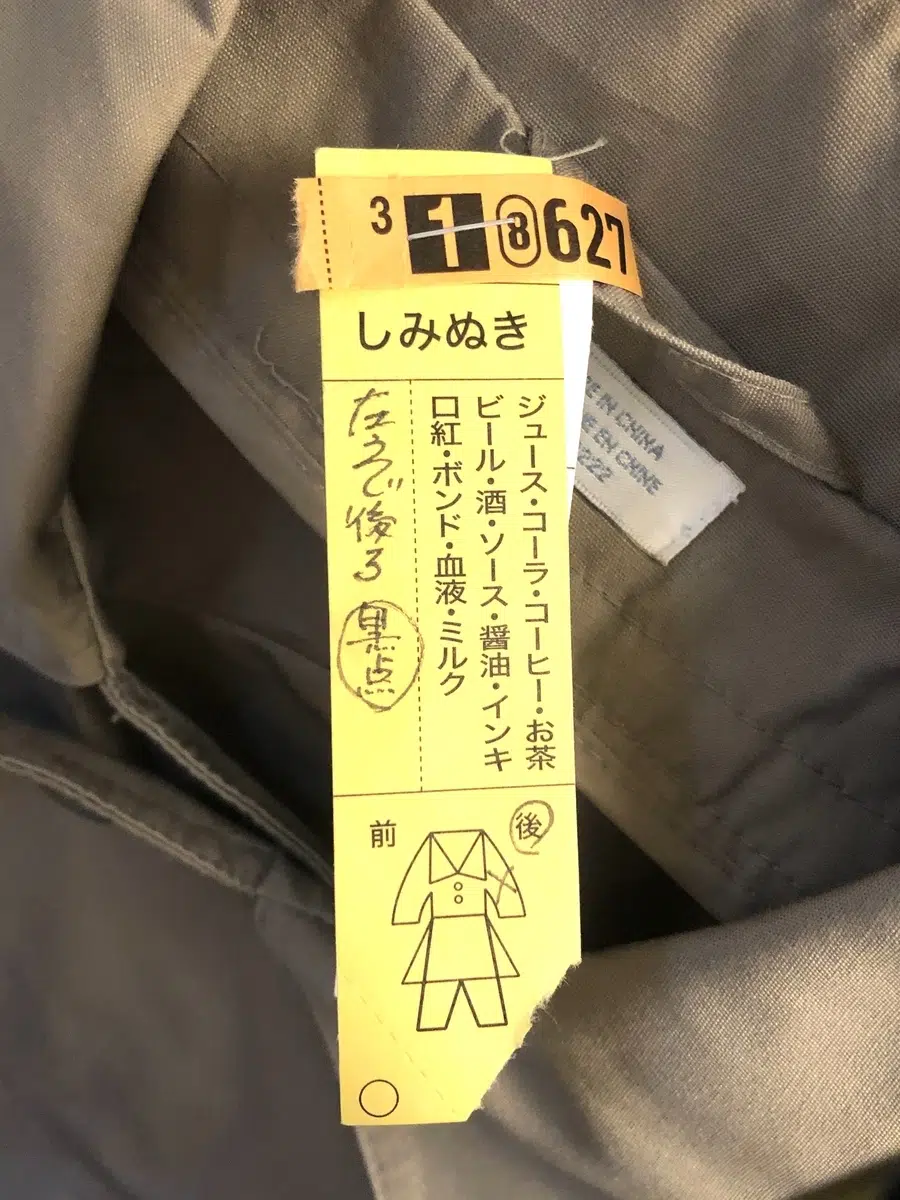 3 1 8 627
しみぬき
ジュース・コーラ・コーヒー・お茶
ビール・酒・ソース・醤油・インキ
口紅・ボンド・血液・ミルク
左うで後ろ
黒点
前
後
IN CHINA
EN CHINE